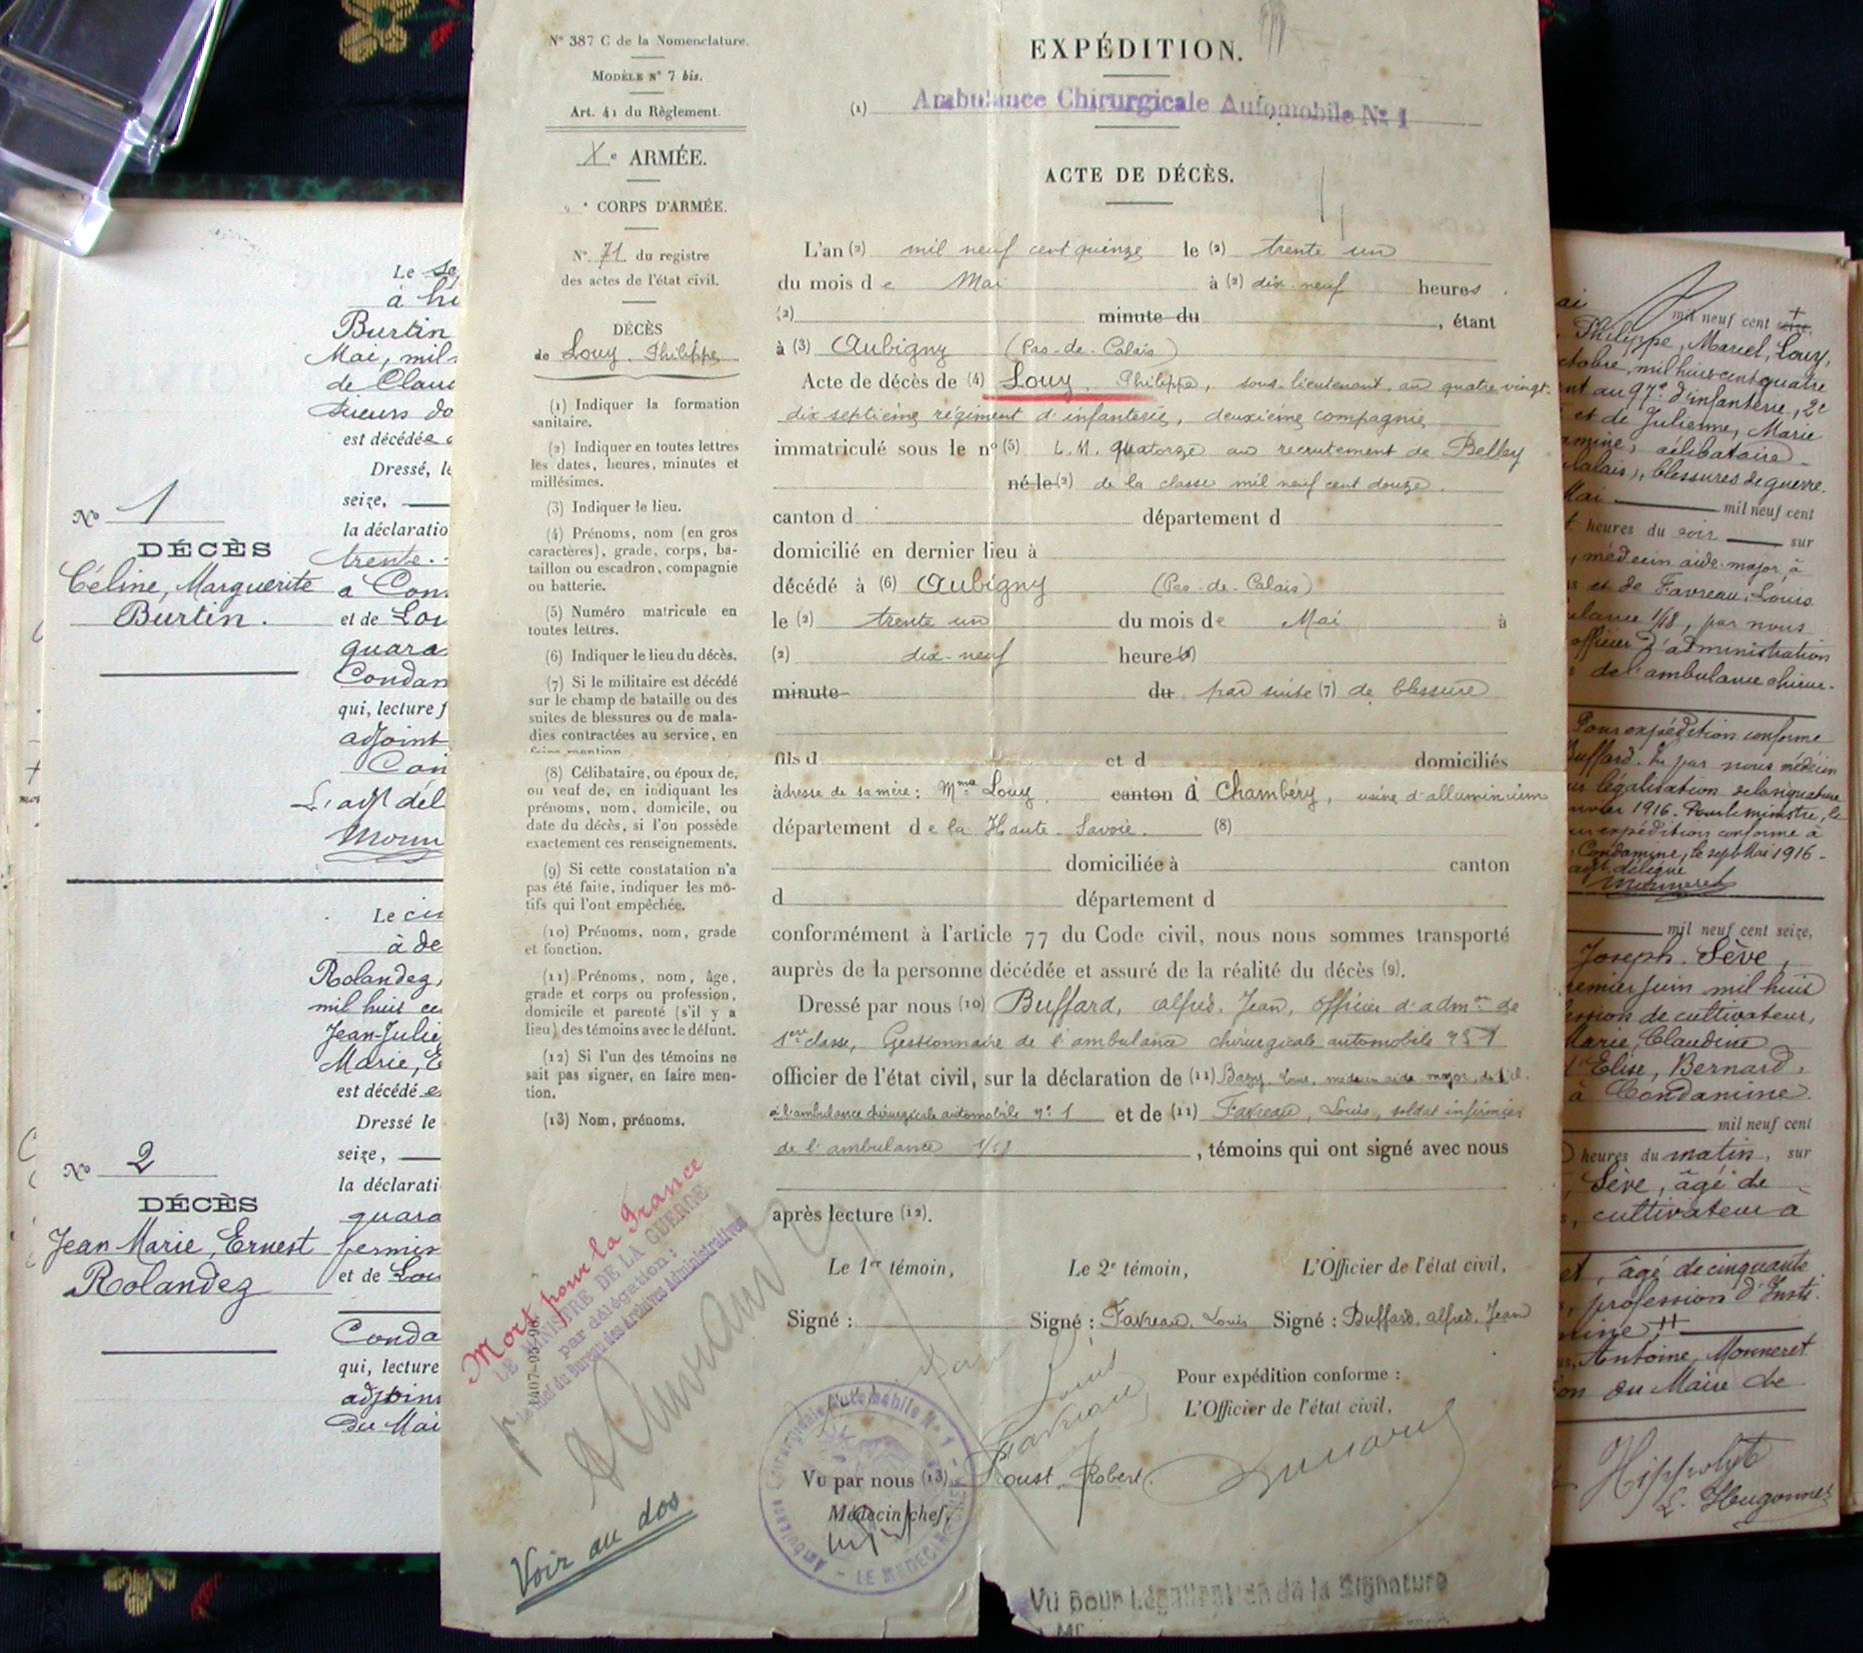 N° 387 C de la Nomenclature.
MODÈLE N° 7 bis.
Art. 41 du Règlement.
Xe ARMÉE.
CORPS D'ARMÉE.
N° 71 du registre
des actes de l'état civil.
DÉCÈS
de Louy Philippe
(1) Indiquer la formation
sanitaire.
(2) Indiquer en toutes lettres
les dates, heures, minutes et
millésimes.
(3) Indiquer le lieu.
(4) Prénoms, nom (en gros
caractères), grade, corps, ba-
taillon ou escadron, compagnie
ou batterie.
(5) Numéro matricule en
toutes lettres.
(6) Indiquer le lieu du décès.
(7) Si le militaire est décédé
sur le champ de bataille ou des
suites de blessures ou de mala-
dies contractées au service, en
faire mention.
(8) Célibataire, ou époux de,
ou veuf de, en indiquant les
prénoms, nom, domicile, ou
date du décès, si l'on possède
exactement ces renseignements.
(9) Si cette constatation n'a
pas été faite, indiquer les mo-
tifs qui l'ont empêchée.
(10) Prénoms, nom, grade
et fonction.
(11) Prénoms, nom, âge,
grade et corps ou profession,
domicile et parenté (s'il y a
lieu) des témoins avec le défunt.
(12) Si l'un des témoins ne
sait pas signer, en faire men-
tion.
(13) Nom, prénoms.
Mort pour la France
LE MINISTRE DE LA GUERRE
par délégation:
le Chef du Bureau des Archives Administratives
Voir au dos
EXPÉDITION.
(1) Ambulance Chirurgicale Automobile N° 1
ACTE DE DÉCÈS.
L'an (2) mil neuf cent quinze le (2) trente un
du mois de Mai à (2) dix neuf heures
(2) minute du , étant
à (3) Aubigny (Pas-de-Calais)
Acte de décès de (4) Louy Philippe, sous-lieutenant au quatre vingt
dix septième régiment d'infanterie, deuxième compagnie
immatriculé sous le n° (5) L.M. quatorze au recrutement de Belley
né le (2) de la classe mil neuf cent douze.
canton d département d
domicilié en dernier lieu à
décédé à (6) Aubigny (Pas-de-Calais)
le (2) trente un du mois de Mai à
(2) dix-neuf heure (s)
minute du par suite (7) de blessure
fils d et d domiciliés
adresse de sa mère: Mme Louy canton d à Chambéry, usine d'alluminium
département de la Haute Savoie (8)
domiciliée à canton
d département d
conformément à l'article 77 du Code civil, nous nous sommes transporté
auprès de la personne décédée et assuré de la réalité du décès (9).
Dressé par nous (10) Buffard, alfred, Jean, officier d'admon de
1ere classe, Gestionnaire de l'ambulance chirurgicale automobile n° 1
officier de l'état civil, sur la déclaration de (11) médecin aide major de
à l'ambulance chirurgicale automobile n° 1 et de (11) Favreau, Louis, soldat infirmier
de l'ambulance 1/18 , témoins qui ont signé avec nous
après lecture (12).
Le 1er témoin, Le 2e témoin, L'Officier de l'état civil,
Signé : Signé : Favreau, Louis Signé : Buffard, alfred, Jean
Pour expédition conforme :
L'Officier de l'état civil,
Louis
Favreau
Vu par nous (13) Robert
Médecin chef,
Ambulance Chirurgicale Automobile N° 1 - LE MEDECIN CHEF -
Vu pour Légalisation de la Signature
Le
à
Burtin
Mai, mil
de Claud
est décédée
Dressé, le
seize,
la déclaratio
trente.
N° 1
DÉCÈS
Céline, Marguerite
Burtin.
a Con
et de Lou
quara
Condam
qui, lecture f
adjoint
Con
L'adjt dél
Le cin
à de
Rolandez,
mil huit ce
Jean-Julie
Marie, E
est décédé
Dressé le
seize,
la déclarati
N° 2
DÉCÈS
Jean Marie, Ernest
Rolandez
quara
fermier
et de Lou
Conda
qui, lecture
adjoint
du Mai
mil neuf cent seize,
Philippe, Marcel, Louy,
octobre, mil huit cent quatre
nt au 97e d'infanterie, 2e
et de Julienne, Marie
célibataire
Calais), blessures de guerre.
Mai mil neuf cent
heures du soir sur
, médecin aide-major, à
et de Favreau, Louis
ambulance 1/18, par nous
officier d'administration
de l'ambulance chirur-
Pour expédition conforme
Buffard. Vu par nous médecin
légalisation de la signature
janvier 1916. Pour le ministre, le
expédition conforme à
Condamine, le sept Mai 1916
adjt délégué
Monneret
mil neuf cent seize,
Joseph Sève,
premier juin mil huit
profession de cultivateur,
Marie, Claudine
Elise, Bernard,
à Condamine.
mil neuf cent
heures du matin, sur
Sève, âgé de
, cultivateur à
et, âgé de cinquante
, profession d'Insti-
Antoine, Monneret
on du Maire de
Hippolyte
L. Hugonnet